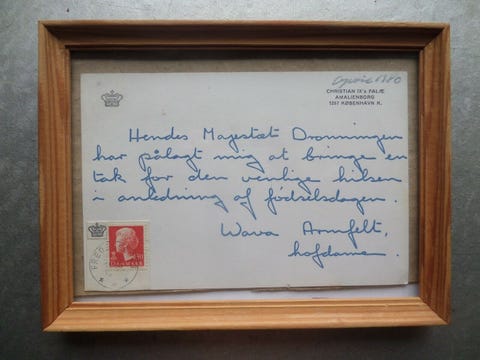 CHRISTIAN IX's PALÆ
AMALIENBORG
1257 KØBENHAVN K.
Hendes Majestæt Dronningen
har pålagt mig at bringe en
tak for den venlige hilsen
i anledning af fødselsdagen.
Wava Armfelt,
hofdame.
FRED
DANMARK